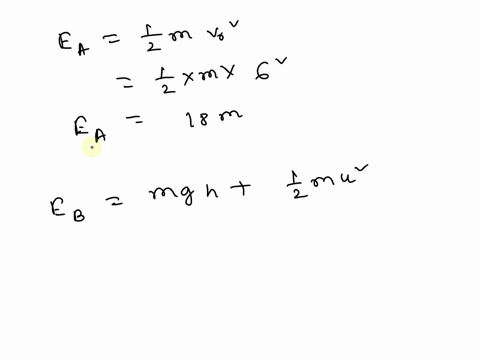 E_A = 1/2 m v₀²
= 1/2 × m × 6²
E_A = 18 m
E_B = mgh + 1/2 mu²